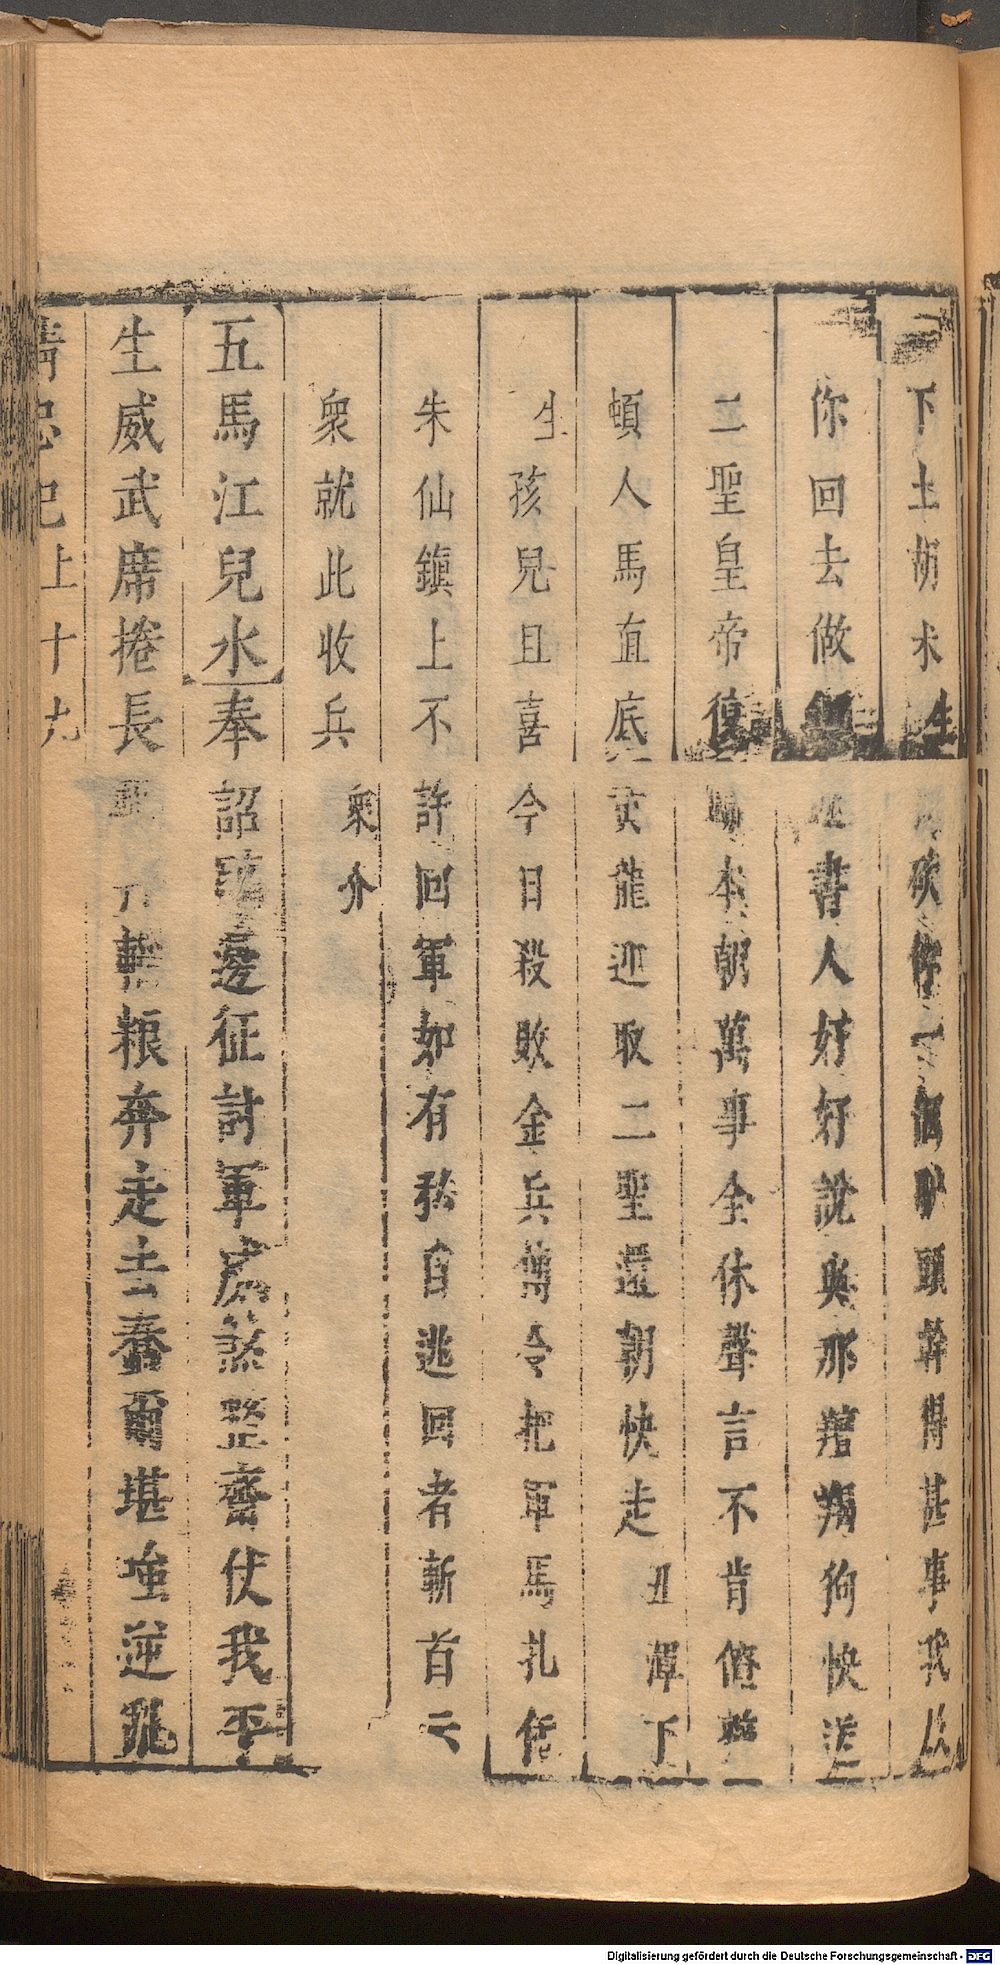 下土胡來生 砍你一個驢頭幹得甚事我
你回去做 書人好好說與那羶羯狗快送
二聖皇帝復 本朝萬事全休聲言不肯
頓人馬直底黃龍迎取二聖還朝快走丑淨下
生孩兒且喜今日殺敗金兵傳令把軍馬扎住
朱仙鎮上不許回軍如有私自逃回者斬首
衆就此收兵衆介
五馬江兒水奉詔 邊征討軍 整齊伏我平
生威武席捲長 粮奔走去蠢爾堪 逆亂
精忠記上十九
Digitalisierung gefördert durch die Deutsche Forschungsgemeinschaft - DFG